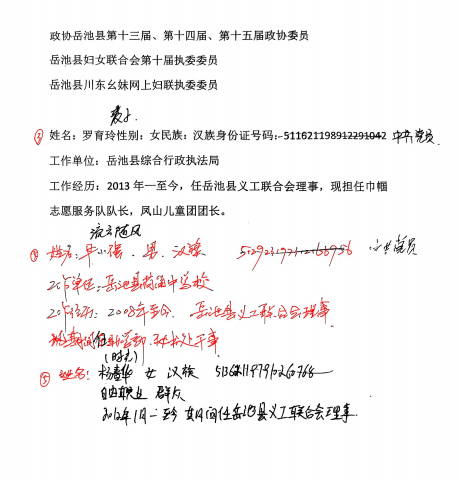 政协岳池县第十三届、第十四届、第十五届政协委员
岳池县妇女联合会第十届执委委员
岳池县川东幺妹网上妇联执委委员
③ 姓名：罗育玲性别：女民族：汉族身份证号码：511621198912291042 中共党员
工作单位：岳池县综合行政执法局
工作经历：2013 年一至今，任岳池县义工联合会理事，现担任巾帼
志愿服务队队长，凤山儿童团团长。
流云随风
④ 姓名：毕小强 . 男 . 汉族 中共党员
工作单位：岳池县 中学校
工作经历：2008年至今 . 岳池县义工联合会理事
期间任 干事
⑤ 姓名：杨春华 女 汉族
自由职业 群众
2012年1月一至今 期间任岳池县义工联合会理事.